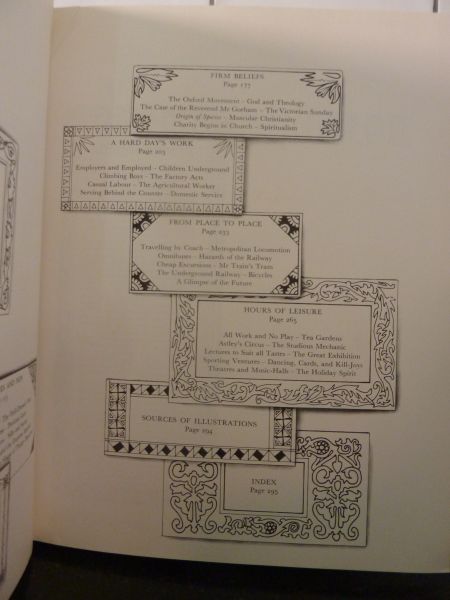 FIRM BELIEFS
Page 177
The Oxford Movement – God and Theology
The Case of the Reverend Mr Gorham – The Victorian Sunday
Origin of Species – Muscular Christianity
Charity Begins in Church – Spiritualism
A HARD DAY'S WORK
Page 203
Employers and Employed – Children Underground
Climbing Boys – The Factory Acts
Casual Labour – The Agricultural Worker
Serving Behind the Counter – Domestic Service
FROM PLACE TO PLACE
Page 233
Travelling by Coach – Metropolitan Locomotion
Omnibuses – Hazards of the Railway
Cheap Excursions – Mr Train's Tram
The Underground Railway – Bicycles
A Glimpse of the Future
HOURS OF LEISURE
Page 265
All Work and No Play – Tea Gardens
Astley's Circus – The Studious Mechanic
Lectures to Suit all Tastes – The Great Exhibition
Sporting Ventures – Dancing, Cards, and Kill-Joys
Theatres and Music-Halls – The Holiday Spirit
SOURCES OF ILLUSTRATIONS
Page 294
INDEX
Page 295